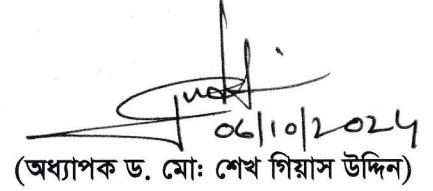 06/10/2024
(অধ্যাপক ড. মোঃ শেখ গিয়াস উদ্দিন)